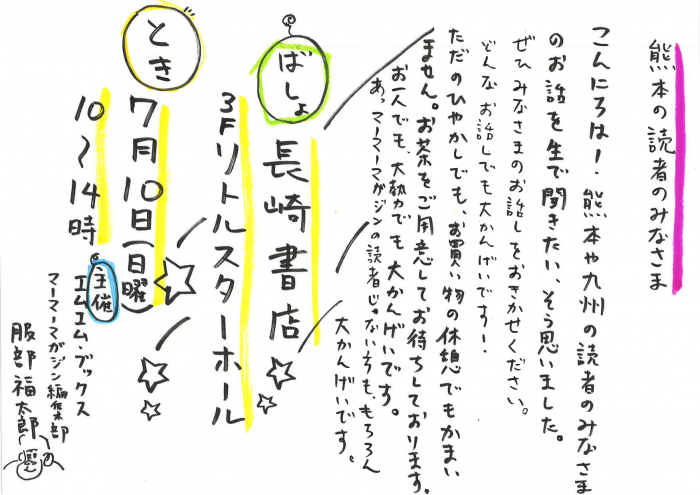 熊本の読者のみなさま
こんにちは！熊本や九州の読者のみなさま
のお話を生で聞きたい、そう思いました。
ぜひみなさまのお話しをおきかせください。
どんなお話しでも大かんげいですー！
ただのひやかしでも、お買い物の休憩でもかまい
ません。お茶をご用意してお待ちしております。
お一人でも、大勢でも大かんげいです。
あっ、マーマーマガジンの読者じゃない方も、もちろん
大かんげいです。
ばしょ
長崎書店
3Fリトルスターホール
とき
7月10日(日曜)
10〜14時
主催
エムエム・ブックス
マーマーマガジン編集部
服部福太郎